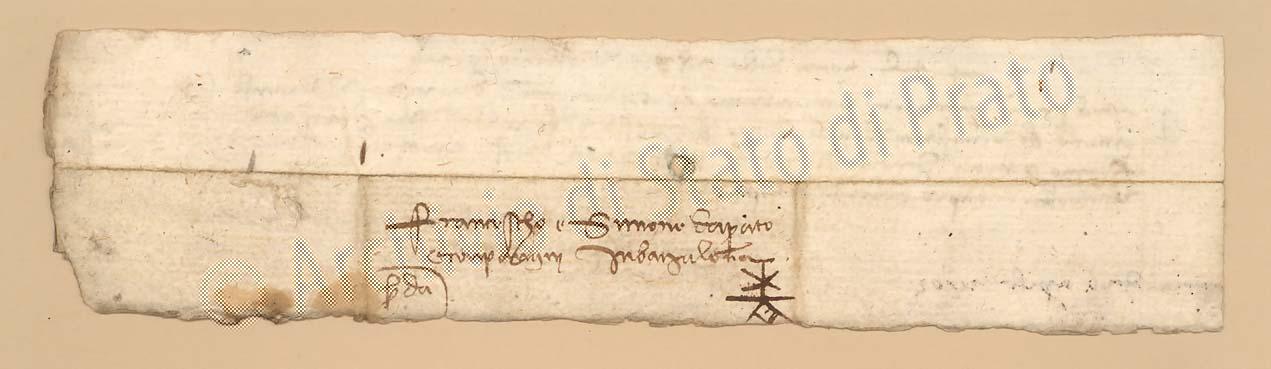 © Archivio di Stato di Prato
Francescho e Simone da prato
e conpagni in barzalona
pda